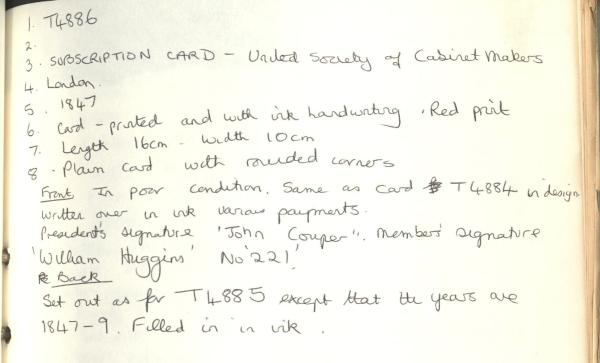 1. T4886
2.
3. SUBSCRIPTION CARD - United Society of Cabinet Makers
4. London.
5. 1847
6. Card - printed and with ink handwriting. Red print
7. Length 16cm - Width 10cm
8. Plain card with rounded corners
Front In poor condition. Same as card T4884 in design
written over in ink various payments.
President's signature 'John Couper". Members signature
'William Huggins' No '221'.
Back
Set out as for T4885 except that the years are
1847-9. Filled in in ink.